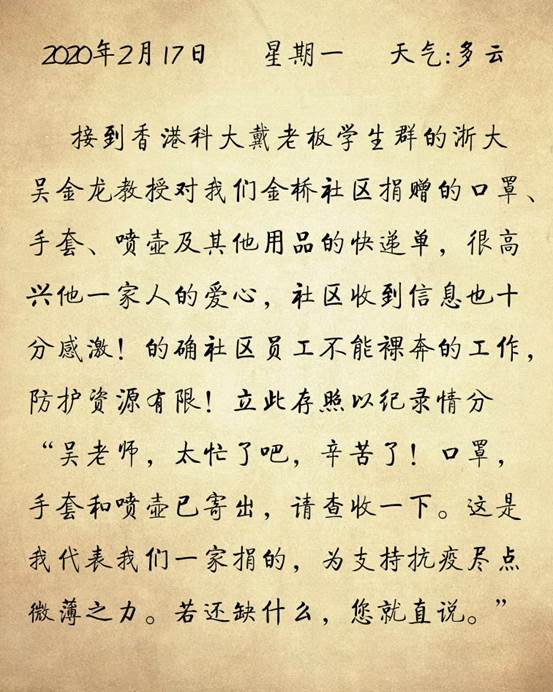 2020年2月17日 星期一 天气:多云
接到香港科大戴老板学生群的浙大
吴金龙教授对我们金桥社区捐赠的口罩、
手套、喷壶及其他用品的快递单，很高
兴他一家人的爱心，社区收到信息也十
分感激！的确社区员工不能裸奔的工作，
防护资源有限！立此存照以纪录情分
“吴老师，太忙了吧，辛苦了！口罩，
手套和喷壶已寄出，请查收一下。这是
我代表我们一家捐的，为支持抗疫尽点
微薄之力。若还缺什么，您就直说。”